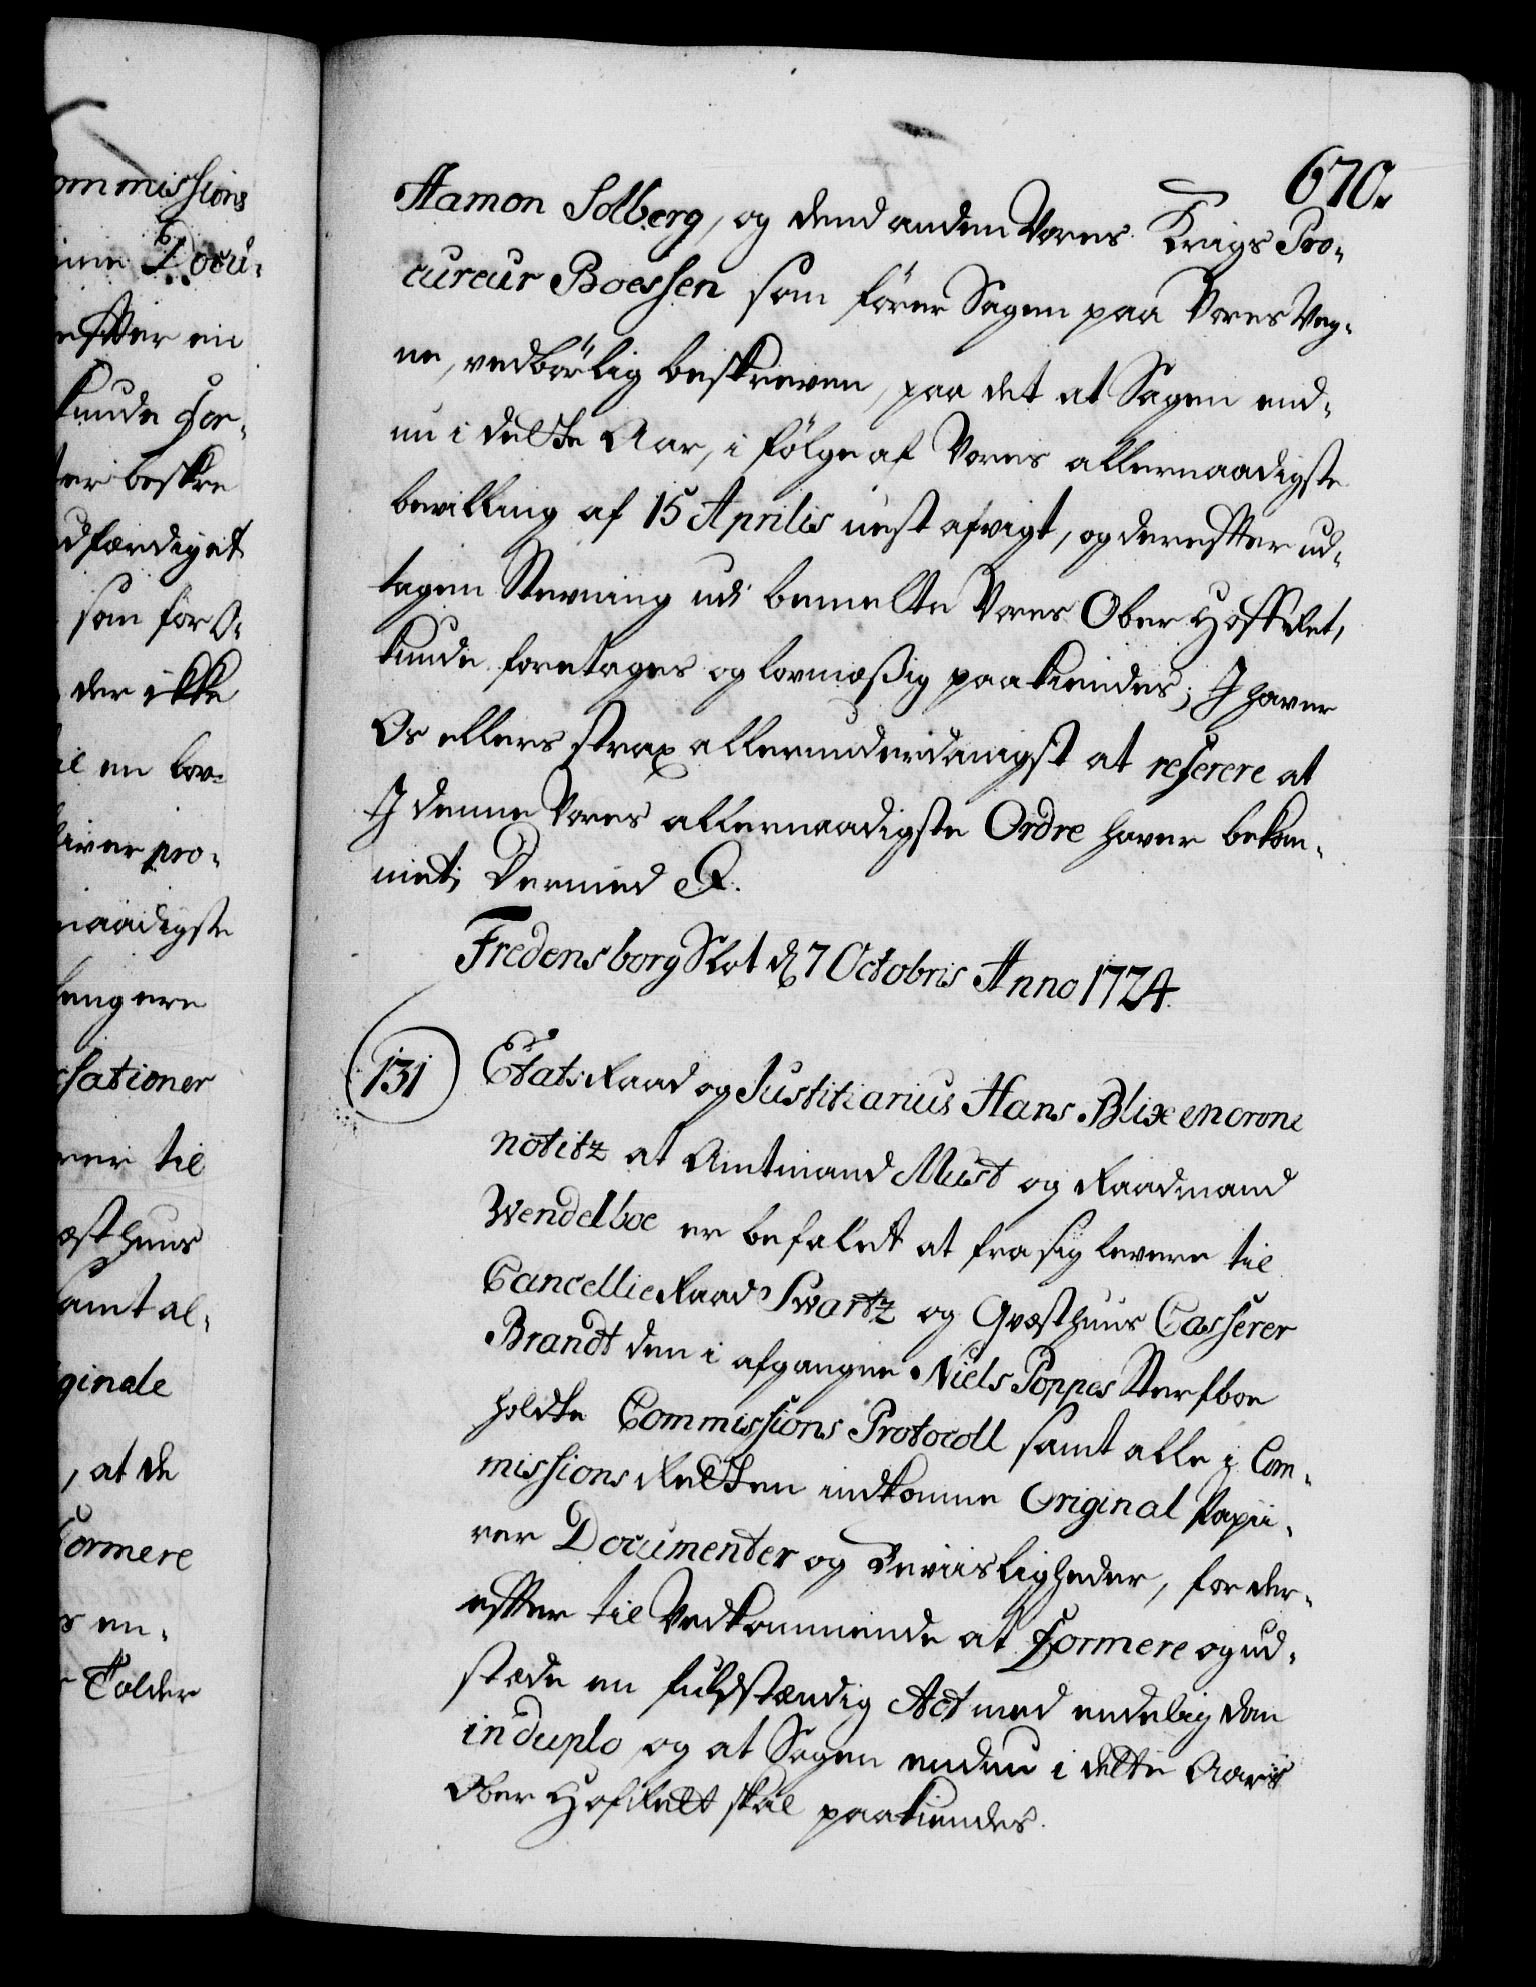 ommissions
inne Docu-
effter en
kunde for-
ter beskre
udfærdiget
som for O-
der ikke
il en lov-
liver pro-
naadigste
lengere
sationer
rer til
æsthuus
samt al-
ginale
, at de
formere
s en-
Tolder
670.
Hamon Solberg, og dend anden Vores Krigs Pro-
cureur Boessen som fører Sagen paa Vores Veg-
ne, vedbørlig beskreven, paa det at Sagen end-
nu i dette Aar, i følge af Vores allernaadigste
bevilling af 15 Aprilis nest afvigt, og dereffter ud-
tagen Stevning udi bemelte Vores Ober Hoff Ret,
kunde foretages og lovmæßig paakiendes; I haver
Os ellers strax allerunderdanigst at referere at
I denne Vores allernaadigste Ordre haver bekom-
met; Dermed &.
Fredensborg Slot d 7 Octobris Anno 1724.
131
Etats Raad og Justitiarius Hans Blixencrone
notitz at Amtmand Must og Raadmand
Wendelboe er befalet at fra sig levere til
Cancellie Raad Swartz og Qvæsthuus Casserer
Brandt den i afgangne Niels Poppes Sterfboe
holdte Commissions Protocoll samt alle i Com-
missions Retten indkomne Original Papii-
rer Documenter og Beviisligheder, for der-
effter til Vedkommende at formere og ud-
stæde en fuldstændig Act med endelig dom
in duplo, og at Sagen endnu i dette Aars
Ober Hof Rett skal paakiendes.